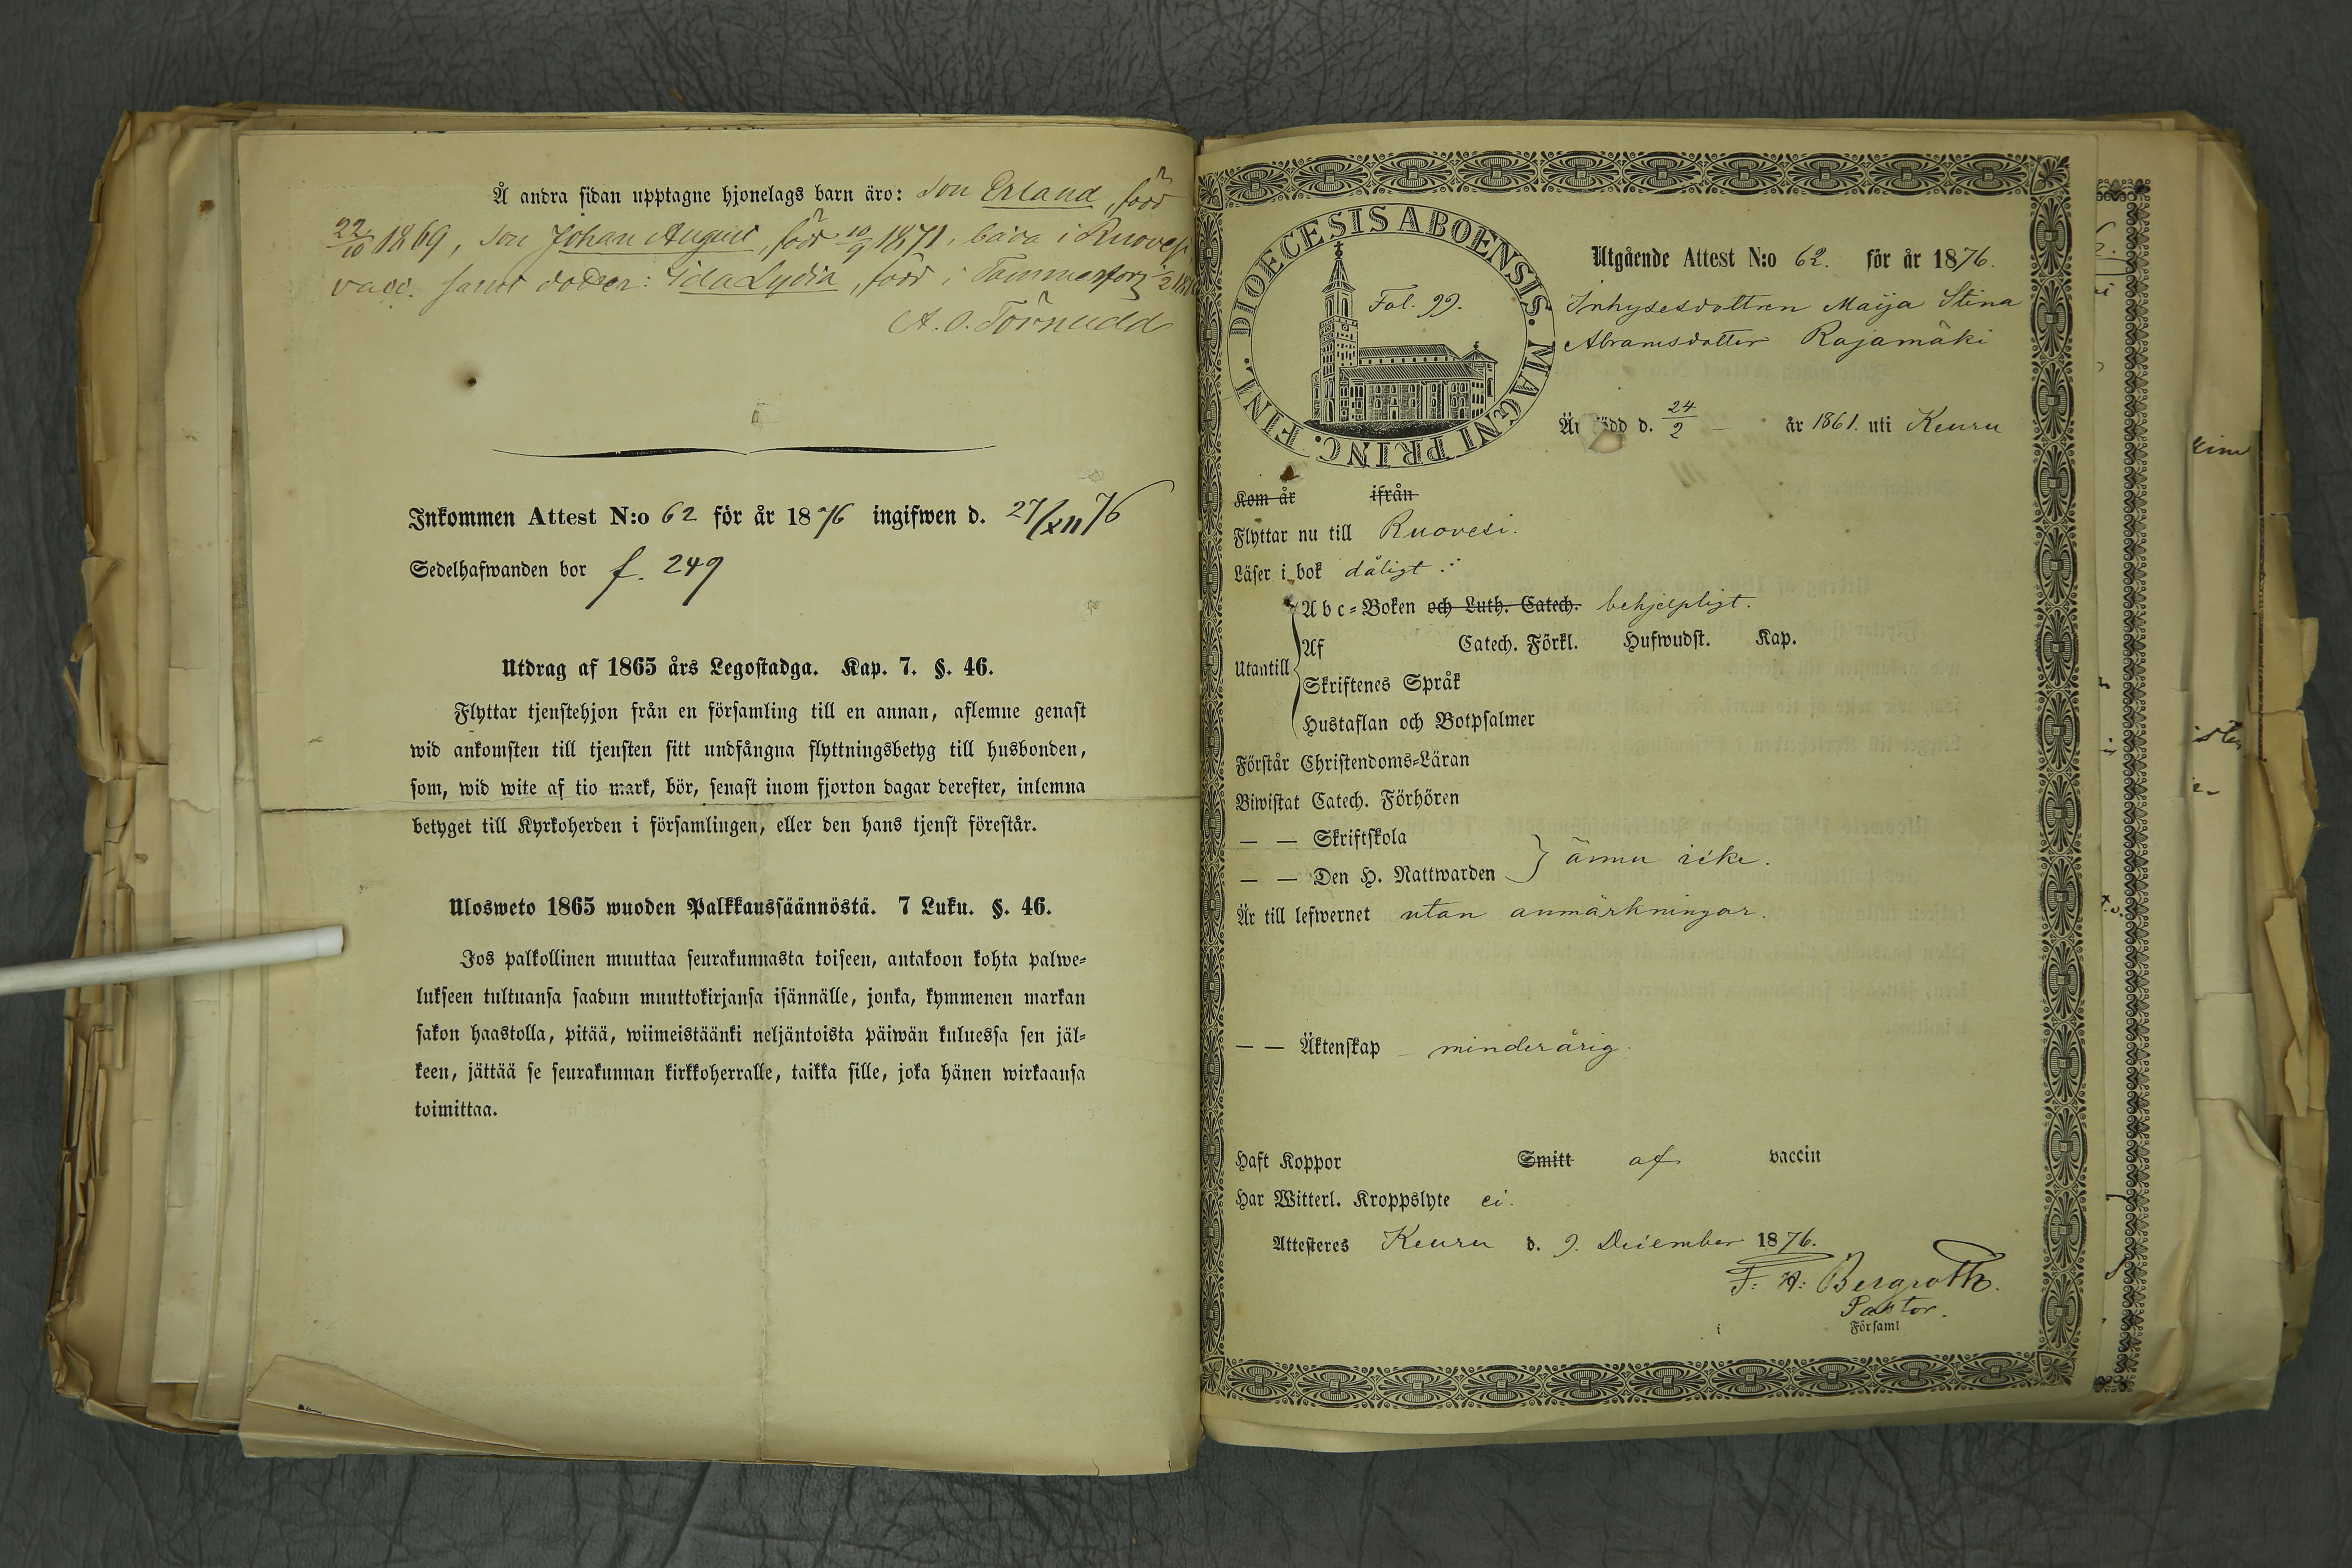 Å andra sidan upptagne hjonelags barn äro: son Erland, född
22/10 1869, son Johan August, född 10/9 1871, båda i Ruovesi,
vacc. samt dotter: Ida Lydia, född i Tammerfors
A. O. Törnudd
Inkommen Attest N:o 62 för år 1876 ingifwen d. 27/XII 76
Sedelhafwanden bor f. 249
Utdrag af 1865 års Legostadga. Kap. 7. §. 46.
Flyttar tjenstehjon från en församling till en annan, aflemne genast
wid ankomsten till tjensten sitt undfångna flyttningsbetyg till husbonden,
som, wid wite af tio mark, bör, senast inom fjorton dagar derefter, inlemna
betyget till Kyrkoherden i församlingen, eller den hans tjenst förestår.
Ulosweto 1865 wuoden Palkkaussäännöstä. 7 Luku. §. 46.
Jos palkollinen muuttaa seurakunnasta toiseen, antakoon kohta palwe-
lukseen tultuansa saadun muuttokirjansa isännälle, jonka, kymmenen markan
sakon haastolla, pitää, wiimeistäänki neljäntoista päiwän kuluessa sen jäl-
keen, jättää se seurakunnan kirkkoherralle, taikka sille, joka hänen wirkaansa
toimittaa.
DIOECESIS ABOENSIS. MAGNI PRINC. FINL.
Fol. 99.
Utgående Attest N:o 62. för år 1876.
Inhysesdottren Maija Stina
Abramsdotter Rajamäki
Är född d. 24/2 år 1861. uti Keuru
Kom år ifrån
Flyttar nu till Ruovesi.
Läser i bok dåligt.
Utantill
Abc-Boken och Luth. Catech. behjelpligt.
Af Catech. Förkl. Hufwudst. Kap.
Skriftenes Språk
Hustaflan och Botpsalmer
Förstår Christendoms-Läran
Biwistat Catech. Förhören
— — Skriftskola
— — Den H. Nattwarden } ännu icke.
Är till lefwernet utan anmärkningar.
— — Äktenskap minderårig.
Haft Koppor Smitt af vaccin
Har Witterl. Kroppslyte ei.
Attesteres Keuru d. 9. December 1876.
F. H. Bergroth.
Pastor.
i Församl